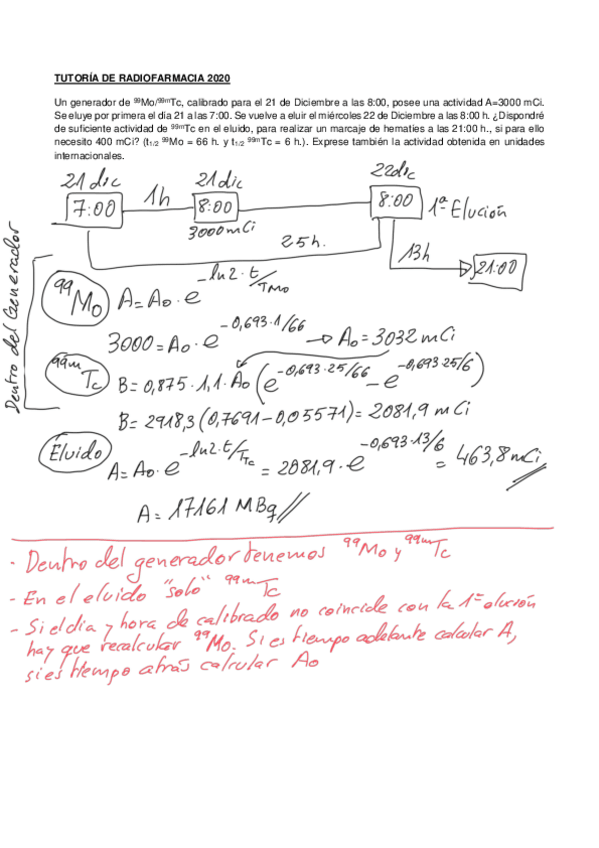 TUTORÍA DE RADIOFARMACIA 2020
Un generador de ⁹⁹Mo/⁹⁹ᵐTc, calibrado para el 21 de Diciembre a las 8:00, posee una actividad A=3000 mCi.
Se eluye por primera el día 21 a las 7:00. Se vuelve a eluir el miércoles 22 de Diciembre a las 8:00 h. ¿Dispondré
de suficiente actividad de ⁹⁹ᵐTc en el eluido, para realizar un marcaje de hematies a las 21:00 h., si para ello
necesito 400 mCi? (t₁/₂ ⁹⁹Mo = 66 h. y t₁/₂ ⁹⁹ᵐTc = 6 h.). Exprese también la actividad obtenida en unidades
internacionales.
21 dic 21 dic 22dic
7:00 1h 8:00 8:00 1ª Elución
3000mCi
25h. 13h 21:00
Dentro del Generador
⁹⁹Mo A = Ao · e^-ln2·t/TMo
3000 = Ao · e^-0,693·1/66 → Ao = 3032 mCi
⁹⁹ᵐTc B = 0,875 · 1,1 · Ao (e^-0,693·25/66 - e^-0,693·25/6)
B = 2918,3 (0,7691 - 0,05571) = 2081,9 mCi
Eluido A = Ao · e^-ln2·t/TTc = 2081,9 · e^-0,693·13/6 = 463,8 mCi
A = 17161 MBq
- Dentro del generador tenemos ⁹⁹Mo y ⁹⁹ᵐTc
- En el eluido "solo" ⁹⁹ᵐTc
- Si el dia y hora de calibrado no coincide con la 1ª elución
hay que recalcular ⁹⁹Mo. Si es tiempo adelante calcular A,
si es tiempo atrás calcular Ao